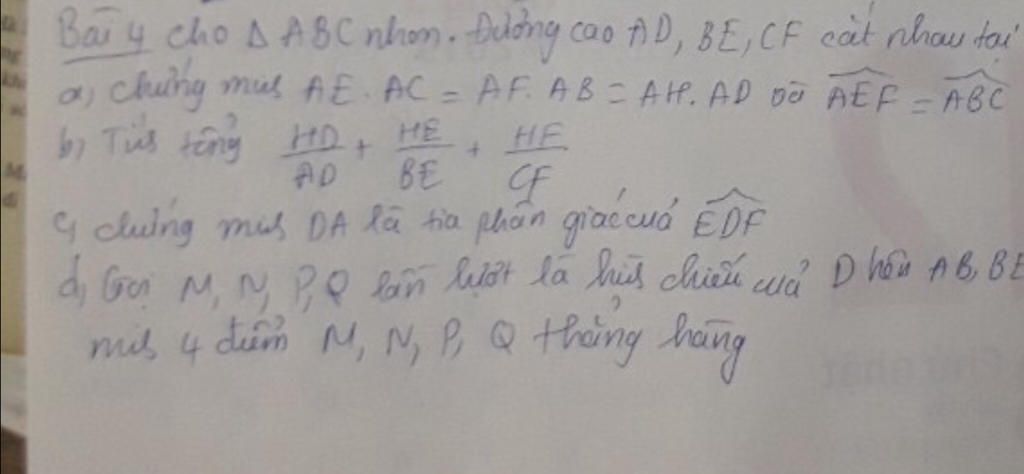 Bài 4 cho Δ ABC nhọn. Đường cao AD, BE, CF cắt nhau tại
a, Chứng mis AE. AC = AF. AB = AH. AD và AEF = ABC
b, Tính tổng HD/AD + HE/BE + HF/CF
c, chứng mis DA là tia phân giác của EDF
d, Gọi M, N, P, Q lần lượt là hìh chiếu của D hên AB, BE
mis 4 điểm M, N, P, Q thẳng hàng